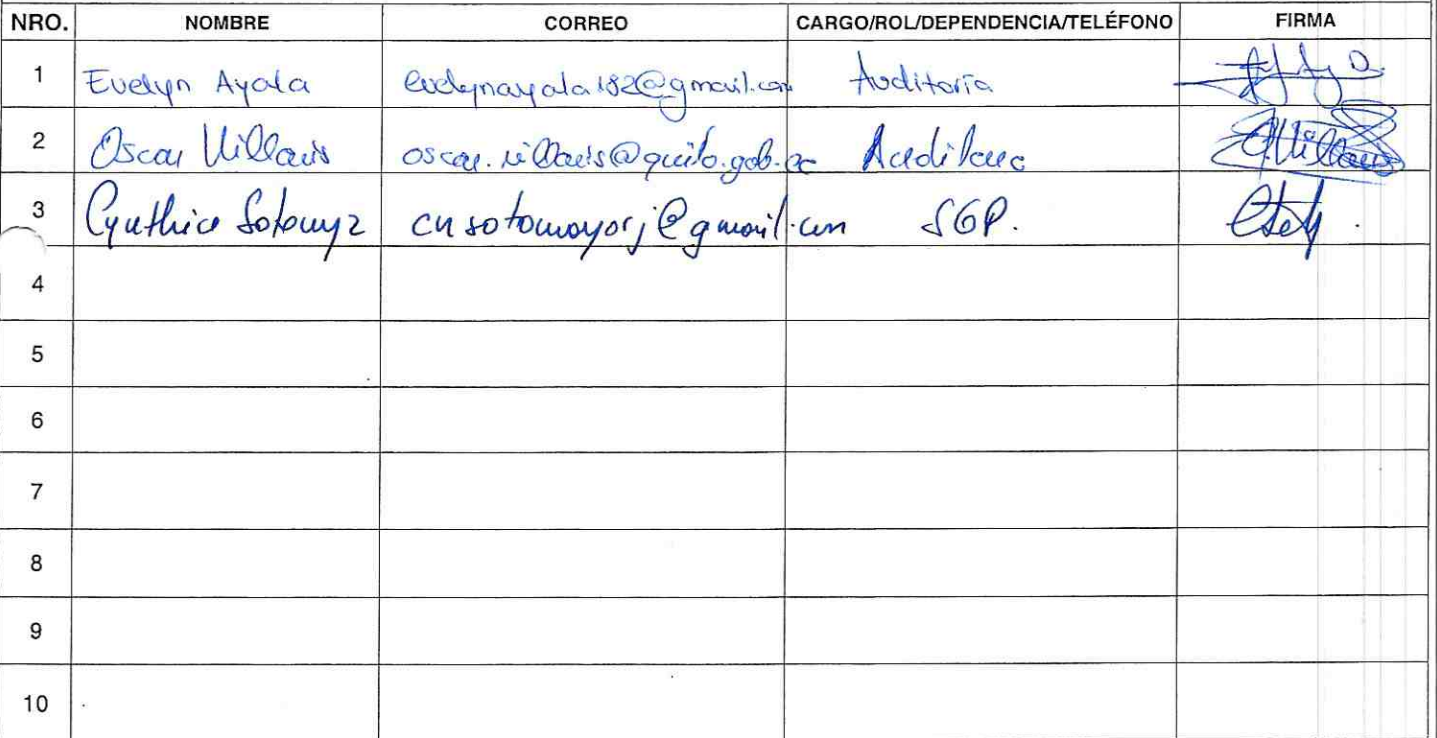 NRO. NOMBRE CORREO CARGO/ROL/DEPENDENCIA/TELÉFONO FIRMA
1 Evelyn Ayala evelynayala182@gmail.com Auditoría
2 Oscar Villacis oscar.villacis@quito.gob.ec Auditoria
3 Cynthia Sotomayor cnsotomayorj@gmail.com SGP.
4
5
6
7
8
9
10